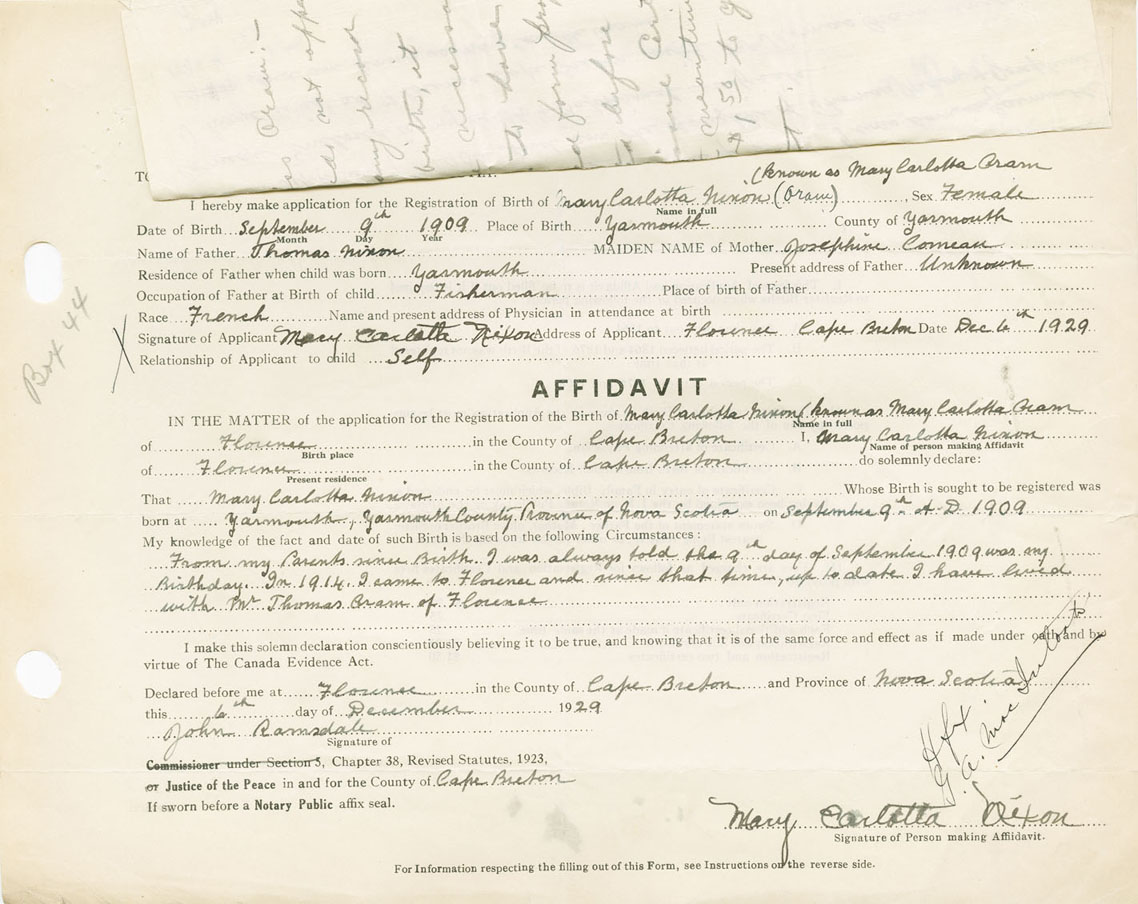 Oram:-
not app
any record
birth, it
necessa
to have
d form prop
before
and Cert
mentione
$1.50 to y
t.
TO
(known as Mary Carlotta Oram
I hereby make application for the Registration of Birth of Mary Carlotta Nixon (Oram) Sex Female
Name in full
Date of Birth September 9th 1909 Place of Birth Yarmouth County of Yarmouth
Month Day Year
Name of Father Thomas Nixon MAIDEN NAME of Mother Josephine Comeau
Residence of Father when child was born Yarmouth Present address of Father Unknown
Occupation of Father at Birth of child Fisherman Place of birth of Father
Race French Name and present address of Physician in attendance at birth
Signature of Applicant Mary Carlotta Nixon Address of Applicant Florence Cape Breton Date Dec 6th 1929
Relationship of Applicant to child Self
X
Box 44
AFFIDAVIT
IN THE MATTER of the application for the Registration of the Birth of Mary Carlotta Nixon (known as Mary Carlotta Oram
Name in full
of Florence in the County of Cape Breton I, Mary Carlotta Nixon
Birth place Name of person making Affidavit
of Florence in the County of Cape Breton do solemnly declare:
Present residence
That Mary Carlotta Nixon Whose Birth is sought to be registered was
born at Yarmouth, Yarmouth County Province of Nova Scotia on September 9th A.D. 1909
My knowledge of the fact and date of such Birth is based on the following Circumstances:
From my Parents since Birth. I was always told the 9th day of September 1909 was my
Birthday. In 1914. I came to Florence and since that time, up to date I have lived
with Mr Thomas Oram of Florence
I make this solemn declaration conscientiously believing it to be true, and knowing that it is of the same force and effect as if made under oath and by
virtue of The Canada Evidence Act.
Declared before me at Florence in the County of Cape Breton and Province of Nova Scotia
this 6th day of December 1929
John Ramsdale
Signature of
Commissioner under Section 5, Chapter 38, Revised Statutes, 1923,
or Justice of the Peace in and for the County of Cape Breton
If sworn before a Notary Public affix seal.
Hfx
G. A. MacIntosh
Mary Carlotta Nixon
Signature of Person making Affidavit.
For Information respecting the filling out of this Form, see Instructions on the reverse side.